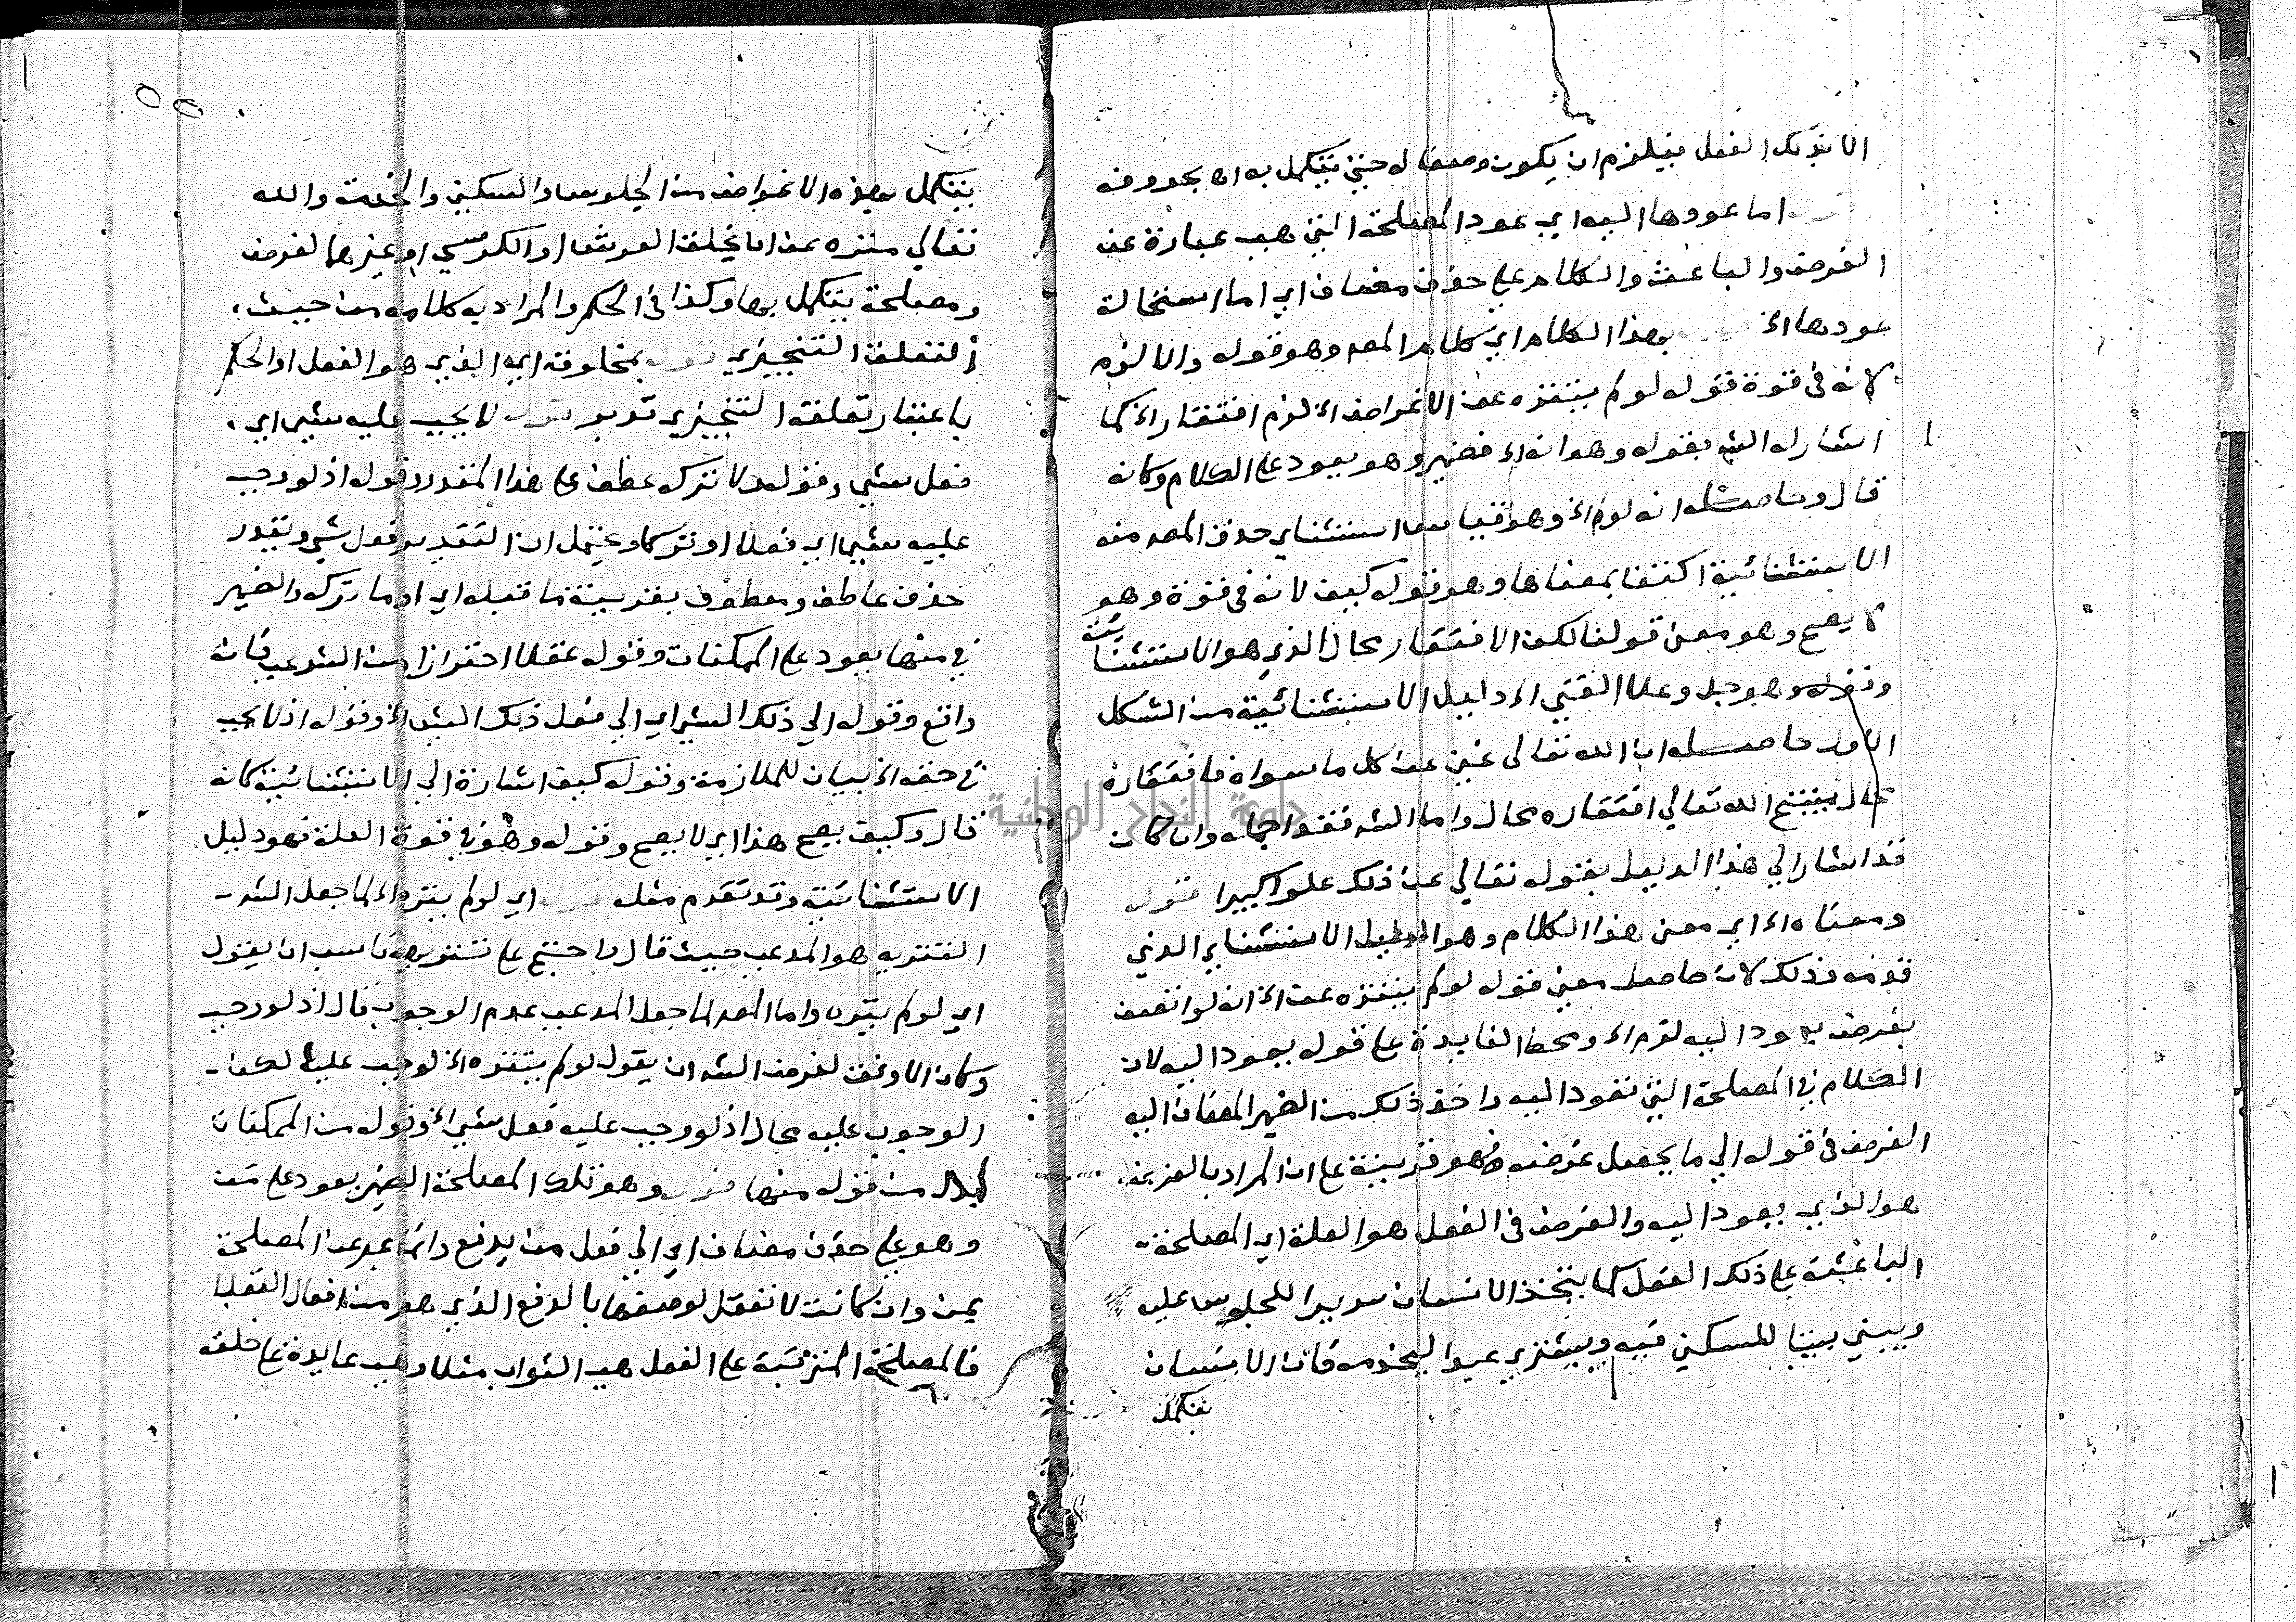 الا بذلك الفعل فيلزم ان يكون وصفا له حتي يتكمل به اه بحروفه
اما عودها اليه اي عود المصلحة التي هي عبارة عن
الغرض والباعث والكلام علي حذف مضاف اي اما استحالة
عودها اﻟﺦ بهذا الكلام اي كلام المص وهو قوله والا لزم
لانه في قوة قوله لو لم يتنزه عن الاغراض اﻟﺦ لزم افتقاره اﻟﺦ كما
اشار له الش بقوله وهو انه اﻟﺦ فضمير وهو يعود علي الكلام وكانه
قال وحاصله انه لو لم اﻟﺦ وهو قياس استثناي حذف المص منه
الاستثنائية اكتفا بمعناها وهو قوله كيف لانه في قوة وهو
لا يصح وهو معني قولنا لكن الافتقار محال الذي هو الاستثنائية
وقوله وهو جل وعلا الغني اﻟﺦ دليل الاستثنائية من الشكل
الاول حاصله ان الله تعالى غني عن كل ما سواه فافتقاره
محال ينتج الله تعالي افتقاره محال واما الش فقد اجمله وان كان
قد اشار الي هذا الدليل بقوله تعالي عن ذلك علوا كبيرا قوله
ومعناه اﻟﺦ اي معني هذا الكلام وهو الدليل الاستثناي الذي
قدمه وذلك لان حاصل معني قوله لو لم يتنزه عن اﻟﺦ انه لو اتصف
بغرض يعود اليه لزم اﻟﺦ ومحط الفايدة علي قوله يعود اليه لان
الكلام في المصلحة التي تعود اليه واخذ ذلك من الضمير المضاف اليه
الغرض في قوله الي ما يحصل غرضه فهو قرينة علي ان المراد بالغرض
هو الذي يعود اليه والغرض في الفعل هو العلة اي المصلحة
الباعثة علي ذلك الفعل كما يتخذ الانسان سريرا للجلوس عليه
ويبني بيتا للسكني فيه ويشتري عبدا ليخدمه فان الانسان
يتكمل
يتكمل بهذه الاغراض من الجلوس والسكني والخدمة والله
تعالي منزه عن ان يخلق العرش او الكرسي او غيرها لغرض
ومصلحة يتكمل بها وكذا في الحكم والمراد به كلامه من حيث
التعلق التنجيزي قوله بمخلوقه اي الذي هو الفعل او الحكم
باعتبار تعلقه التنجيزي قوله لا يجب عليه شي اي
فعل شي وقوله ولا تركه عطف علي هذا المقدر وقوله اذ لو وجب
عليه شي اي فعلا او تركا ويحتمل ان التقدير فعل شي وتقدر
حذف عاطف ومعطوف بقرينة ما قبله اي او ما تركه والضمير
في منها يعود علي الممكنات وقوله عقلا احترازا من الشرعي فان
واقع وقوله الي ذلك الشي اي الي فعل ذلك الشي اﻟﺦ وقوله اذ لا يجب
في حقه اﻟﺦ بيان للملازمة وقوله كيف اشارة الي الاستثنائية كانه
قال وكيف يصح هذا اي لا يصح وقوله وهو في قوة العلة فهو دليل
الاستثنائية وقد تقدم مثله قوله اي لو لم يتنزه اﻟﺦ لما جعل الش
التنزيه هو المدعي حيث قال واحتج علي تنزيهه ناسب ان يقول
اي لو لم يتنزه واما المص لما جعل المدعي عدم الوجوب قال اذ لو وجب
وكان الاوفق لغرض الش ان يقول لو لم يتنزه اﻟﺦ لوجب عليه لكن
الوجوب عليه محال اذ لو وجب عليه فعل شي اﻟﺦ وقوله من الممكنات
بدل من قوله منها قوله وهو تلك المصلحة الضمير يعود علي من
وهو علي حذف مضاف اي الي فعل من يدفع وانما عبر عن المصلحة
بمن وان كانت لا تعقل لوصفها بالدفع الذي هو من افعال العقلا
فالمصلحة المترتبة علي الفعل هي الثواب مثلا وهي عايدة علي خلقه